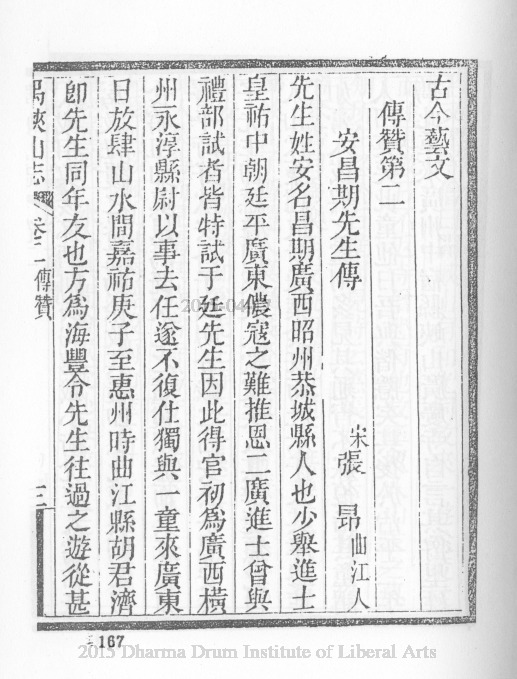 古今藝文
傳贊第二
安昌期先生傳
宋張 昂曲江人
先生姓安名昌期廣西昭州恭城縣人也少舉進士
皇祐中朝廷平廣東儂寇之難推恩二廣進士曾與
禮部試者皆特試于廷先生因此得官初為廣西橫
州永淳縣尉以事去任遂不復仕獨與一童來廣東
日放肆山水間嘉祐庚子至惠州時曲江縣胡君濟
卽先生同年友也方為海豐令先生往過之遊從甚
禺峽山志 卷二 傳贊 三
167
2015 Dharma Drum Institute of Liberal Arts